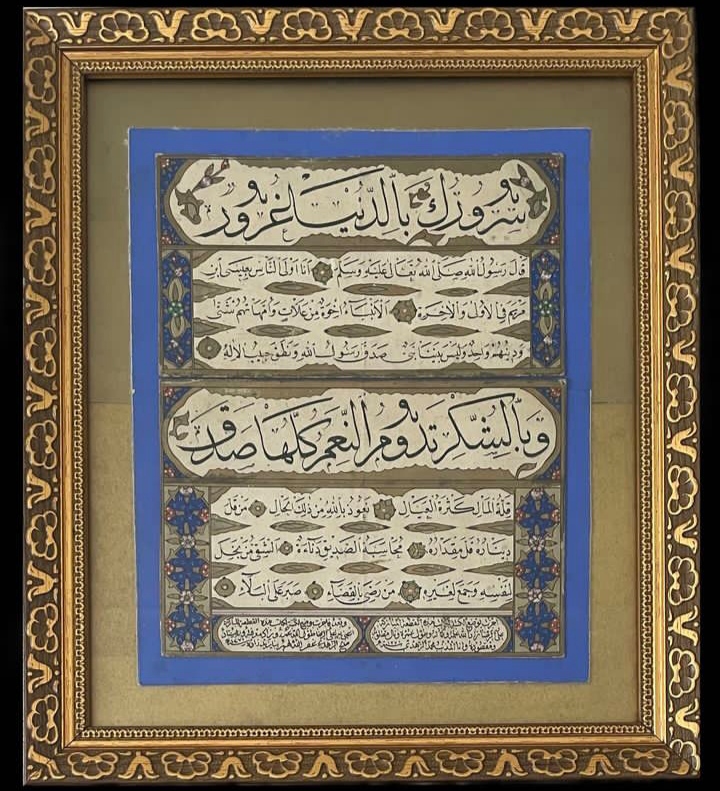 سرورك بالدنيا غرور
قال رسول الله صلى الله تعالى عليه وسلم انا اولى الناس بعيسى ابن
مريم في الاولى والاخرة الانبياء اخوة من علات وامهاتهم شتى
ودينهم واحد وليس بيننا نبي صدق رسول الله ونطق حبيب الاله
وبالشكر تدوم النعم كلها صدق
قلة المال كثرة العيال نعوذ بالله من ذلك الحال من قل
ديناره قل مقداره محاسبة الصديق دناءة الشقي من بخل
لنفسه وجمع لغيره من رضي بالقضاء صبر على البلاء